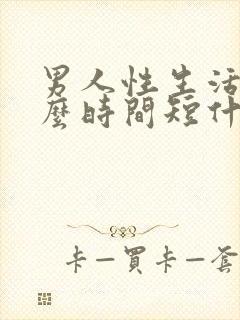 男人性生活
麼時間短什
卡—買卡—套